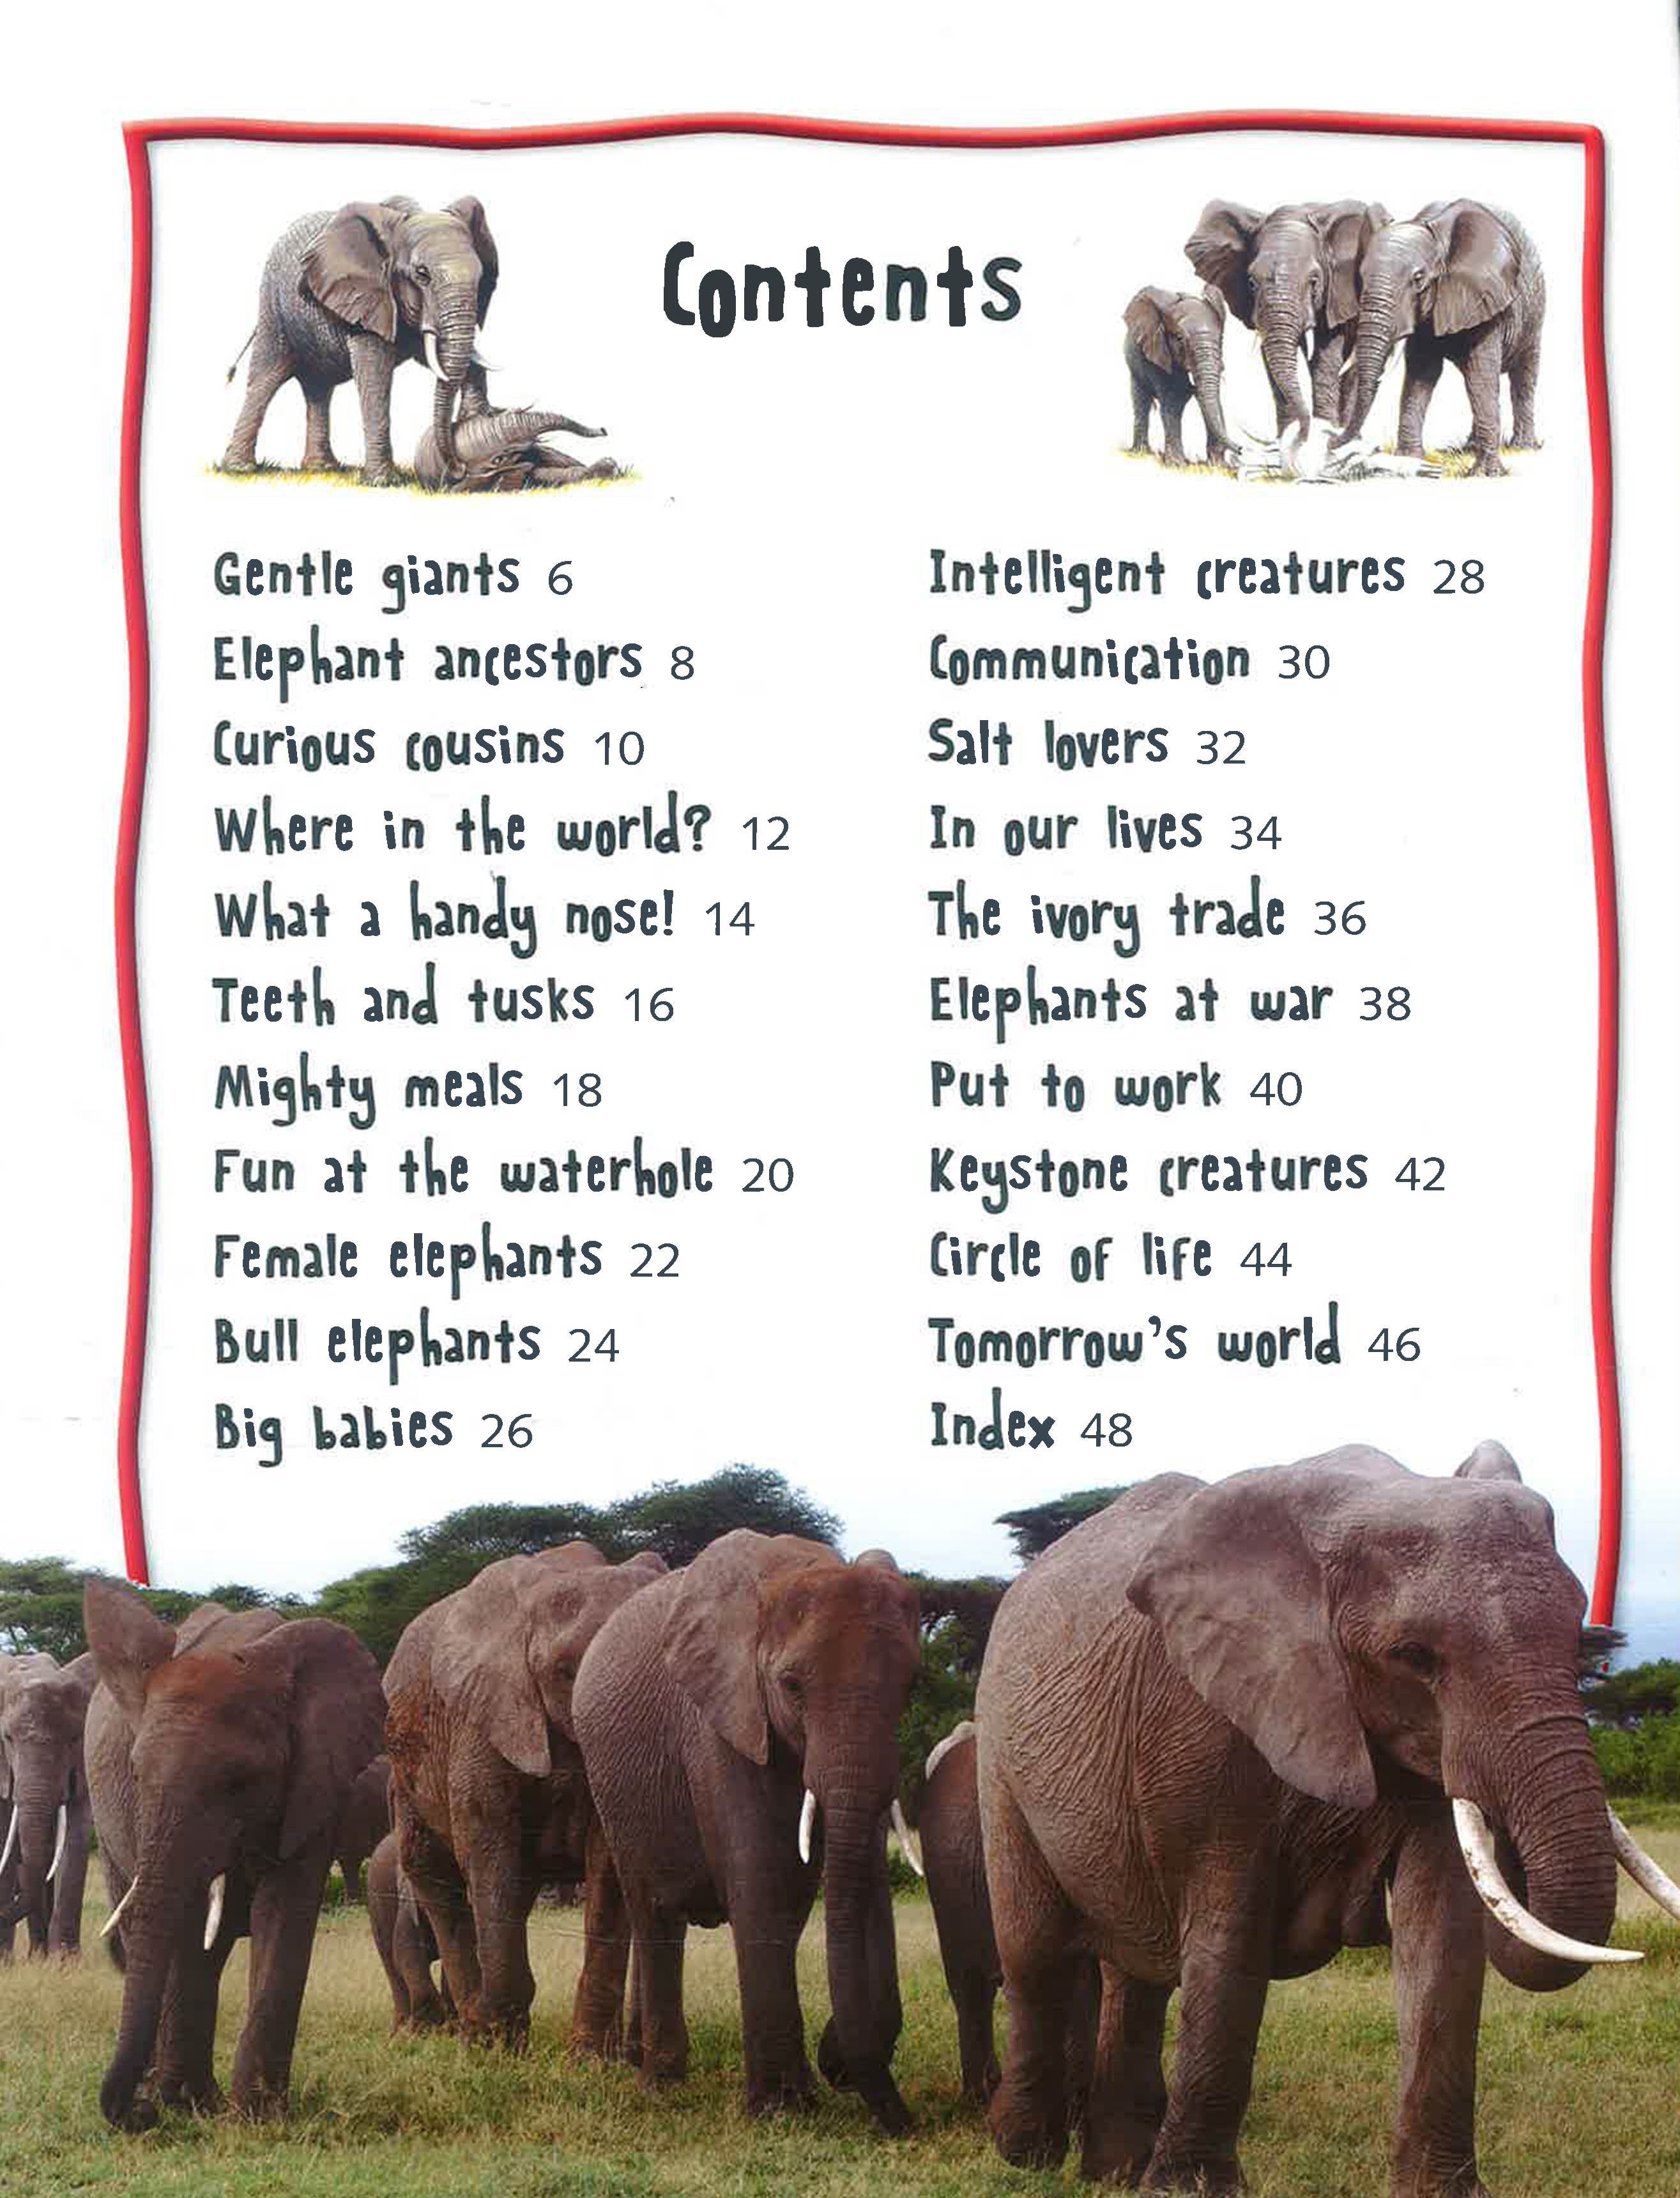 Contents
Gentle giants 6
Elephant ancestors 8
Curious cousins 10
Where in the world? 12
What a handy nose! 14
Teeth and tusks 16
Mighty meals 18
Fun at the waterhole 20
Female elephants 22
Bull elephants 24
Big babies 26
Intelligent creatures 28
Communication 30
Salt lovers 32
In our lives 34
The ivory trade 36
Elephants at war 38
Put to work 40
Keystone creatures 42
Circle of life 44
Tomorrow's world 46
Index 48